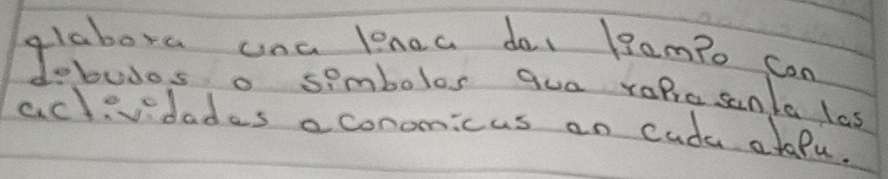 elabora una linea del tiempo con
dibujos o simbolos que representa las
actividades economicas en cada etapa.